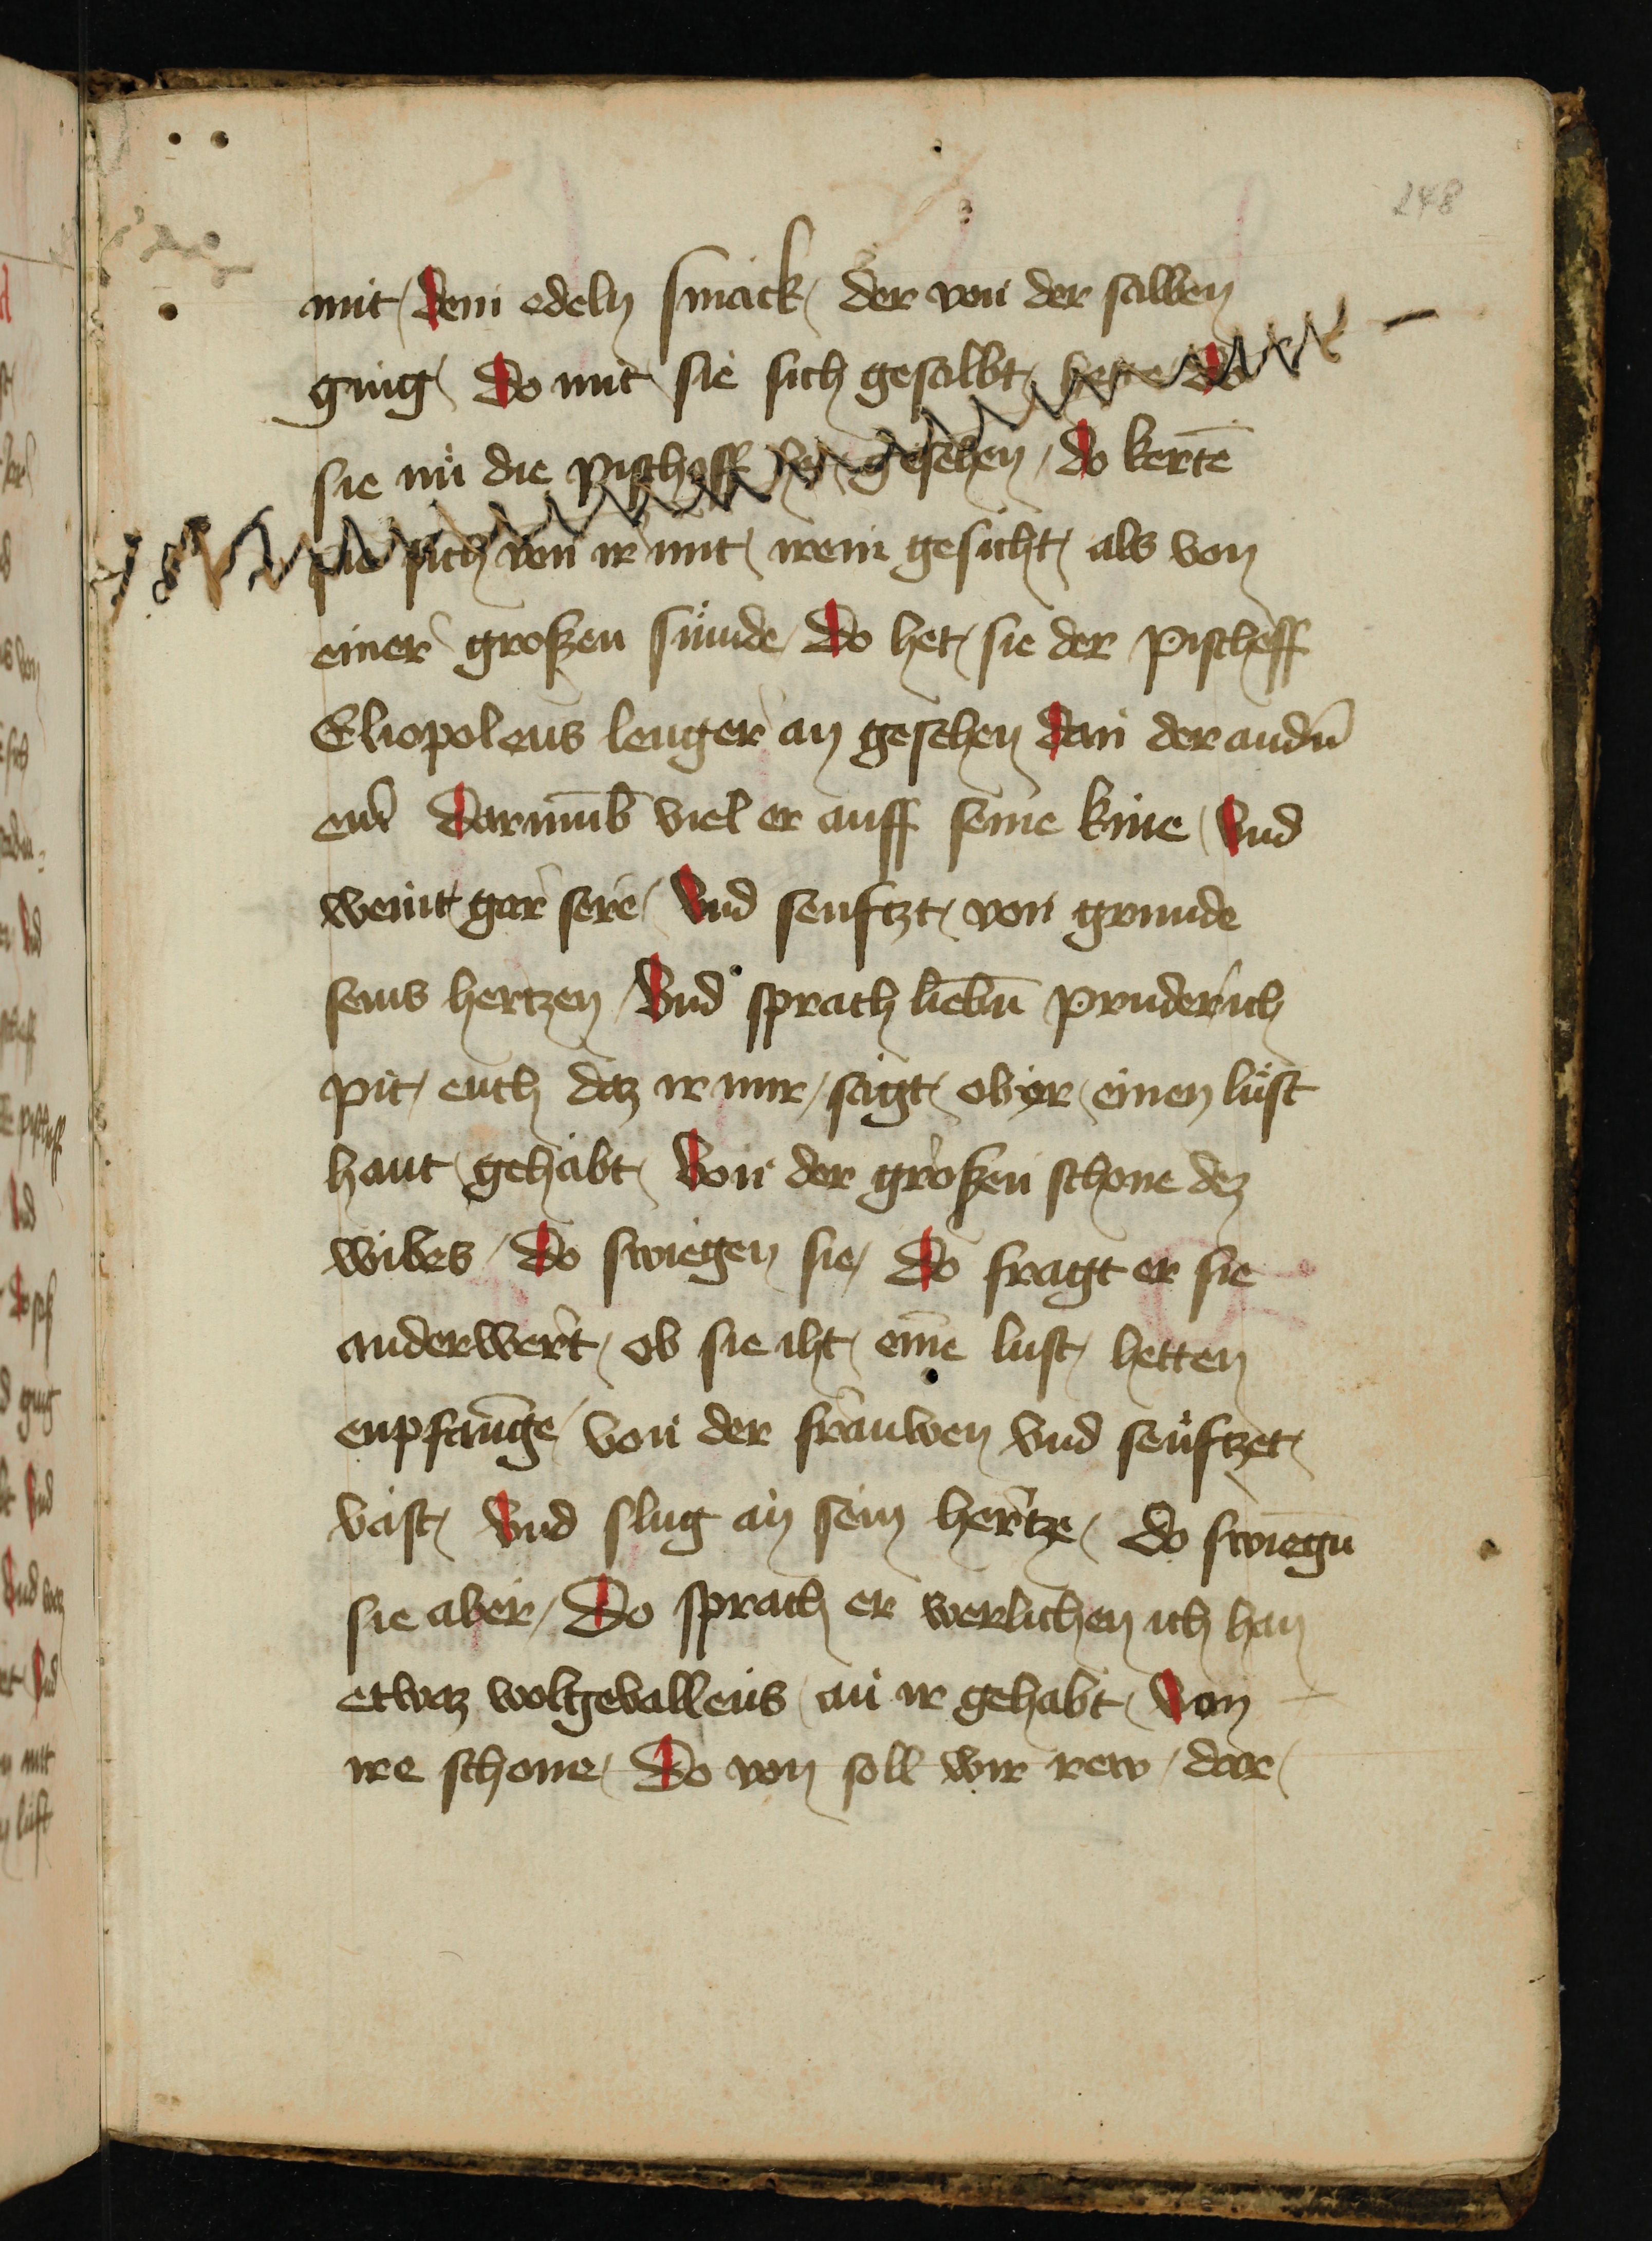 248
mit dem edeln smack der von der salben
ging Do mit sie sich gesalbt hette Do
sie nu die pischoff het gesehen do kertē
sie sich von ir mit irem gesicht als von
einer großen sünde Do het sie der pischeff
Eliopoleus lenger an gesehen dan der andn̄
ein̄ darumb viel er auff seine knie Vnd
weint gar sere Vnd senftzt von grunde
seins hertzen Vnd sprach liebn̄ pruder ich
pit euch daz ir mir sagt ob ir einen lust
hant gehabt Von der großen schone dez
wibes Do swiegen sie Do fragt er sie
anderwert ob sie iht eine lust hetten
enpfange von der frauwen vnd seuftzet
vast Vnd slug an sein hertze do swiegn̄
sie aber Do sprach er werlichen ich han
etwaz wolgevallens an ir gehabt Von
ire schone Do von soll wir rew dar